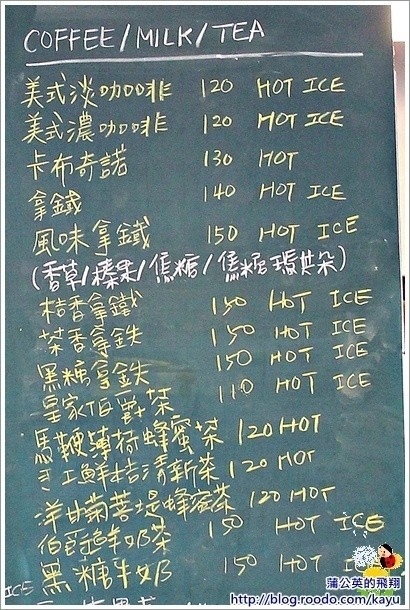 COFFEE/MILK/TEA
美式淡咖啡 120 HOT ICE
美式濃咖啡 120 HOT ICE
卡布奇諾 130 HOT
拿鐵 140 HOT ICE
風味拿鐵 150 HOT ICE
(香草/榛果/焦糖/焦糖瑪其朵)
桔香拿鐵 150 HOT ICE
茶香拿鉄 150 HOT ICE
黑糖拿鉄 150 HOT ICE
皇家伯爵茶 110 HOT ICE
馬鞭薄荷蜂蜜茶 120 HOT
手工鮮桔清新茶 120 HOT
洋甘菊菩堤蜂蜜茶 120 HOT
伯爵鮮牛奶茶 150 HOT ICE
黑糖牛奶 150 HOT ICE
ICE
蒲公英的飛翔
http://blog.roodo.com/kayu